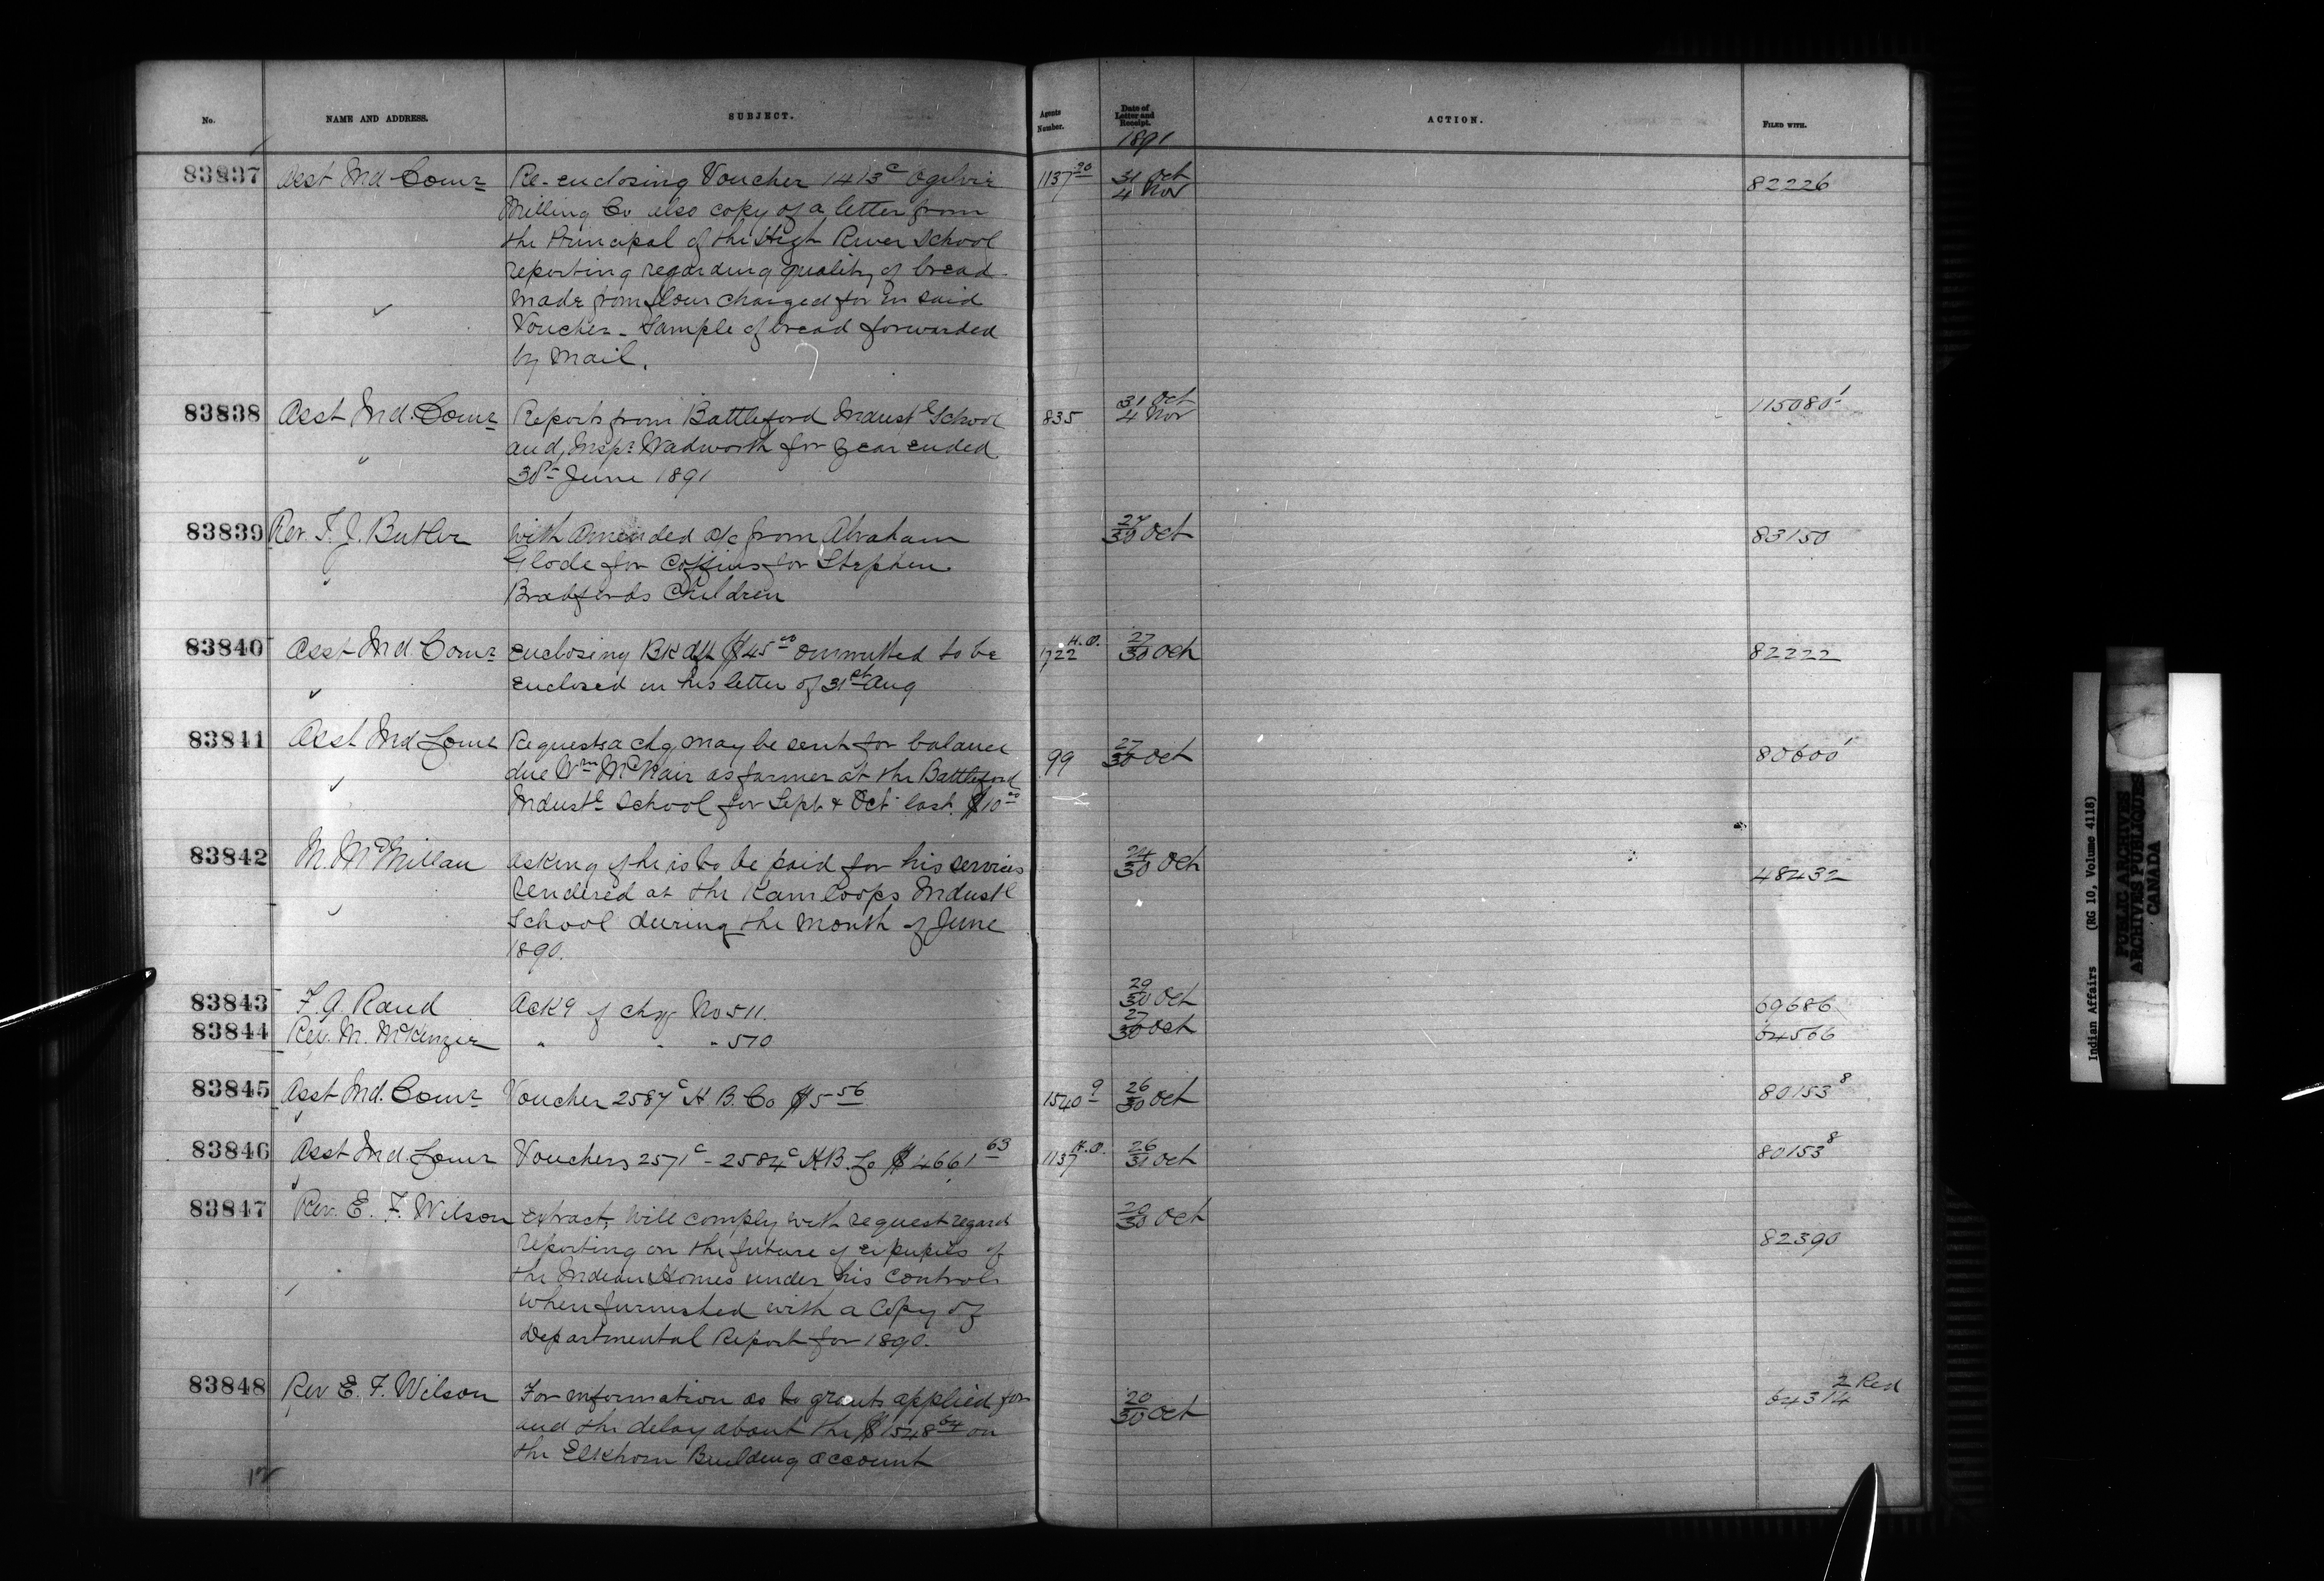 No. NAME AND ADDRESS. SUBJECT. Agents Number. Date of Letter and Receipt. 1891 ACTION. FILED WITH.
83837 Asst Ind Comr Re-enclosing Voucher 1413c Ogilvie 1137 20 31 Oct 4 Nov 82226
Milling Co also copy of a letter from
the Principal of the High River School
reporting regarding quality of bread
made from flour charged for in said
Voucher - Sample of bread forwarded
by mail.
83838 Asst Ind. Comr Reports from Battleford Industl School 835 31 Oct 4 Nov 115080-1
and Inspr Wadworth for year ended
30th June 1891
83839 Rev. T. J. Butler With amended a/c from Abraham 27 30 Oct 83150
Glode for Coffins for Stephen
Bradfords Children
83840 Asst Ind Comr Enclosing Bk dft $45 00 ommitted to be 1722 H.O. 27 30 Oct 82222
enclosed in his letter of 31st Aug
83841 Asst Ind Comr Requests a chq may be sent for balance 99 27 30 Oct 80600 1
due Wm McNair as farmer at the Battleford
Industl School for Sept & Oct last. $10 00
83842 M. McMillan Asking if he is to be paid for his services 24 30 Oct 48432
rendered at the Kamloops Industl
School during the month of June
1890.
83843 F. A. Rand Ackg of chq No 511. 29 30 Oct 69686
83844 Rev. M. McKenzie " " " 510 27 30 Oct 64566
83845 Asst Ind. Comr Voucher 2587c H. B. Co $5 56 1540 9 26 30 Oct 80153 8
83846 Asst Ind. Comr Vouchers 2571c - 2584c H B. Co $4661 63 1137 H.O. 26 31 Oct 80153 8
83847 Rev. E. F. Wilson Extract, Will comply with request regard 20 30 Oct 82390
reporting on the future of expupils of
the Indian Homes under his control
when furnished with a Copy of
Departmental Report for 1890.
83848 Rev E. F. Wilson For information as to grants applied for 20 30 Oct 64314 2 Red
and the delay about the $1548 64 on
the Elkhorn Building account
Indian Affairs (RG 10, Volume 4118)
PUBLIC ARCHIVES
ARCHIVES PUBLIQUES
CANADA